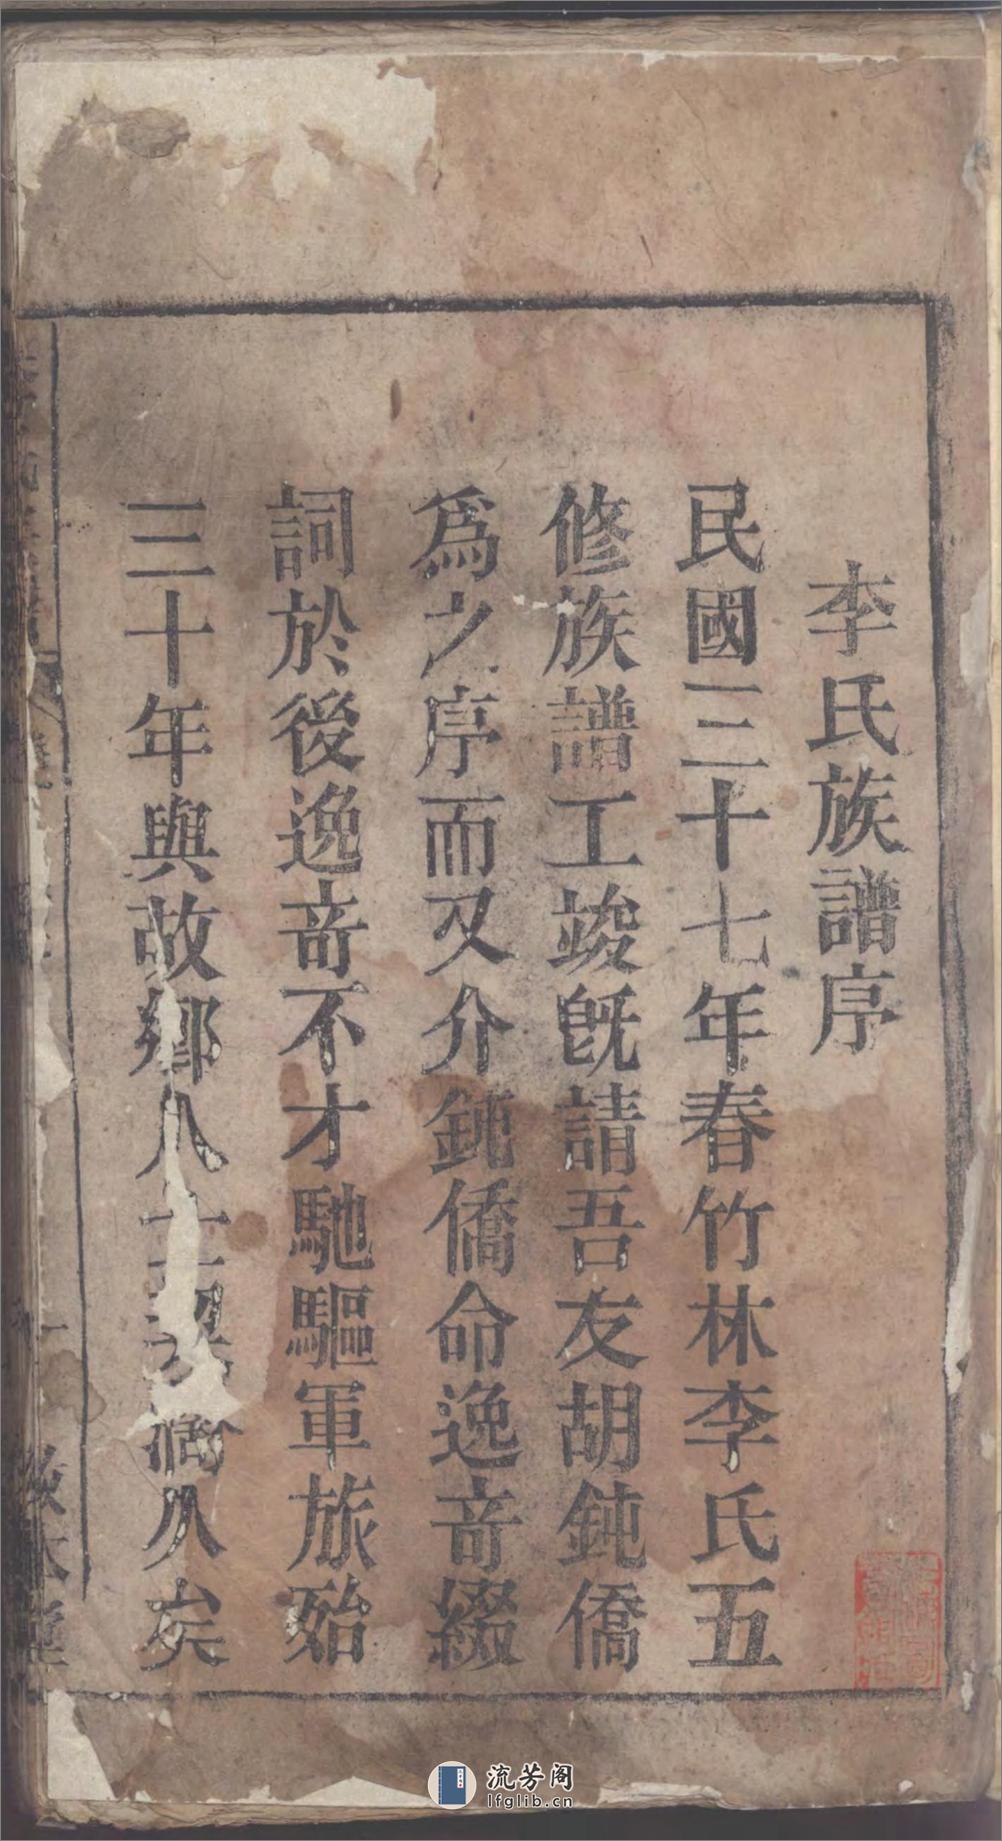 李氏族譜序
民國三十七年春竹林李氏五
修族譜工竣旣請吾友胡鈍僑
爲之序而又介鈍僑命逸音綴
詞於後逸音不才馳驅軍旅殆
三十年與故鄉人士契濶久矣
流芳阁
lfglib.cn